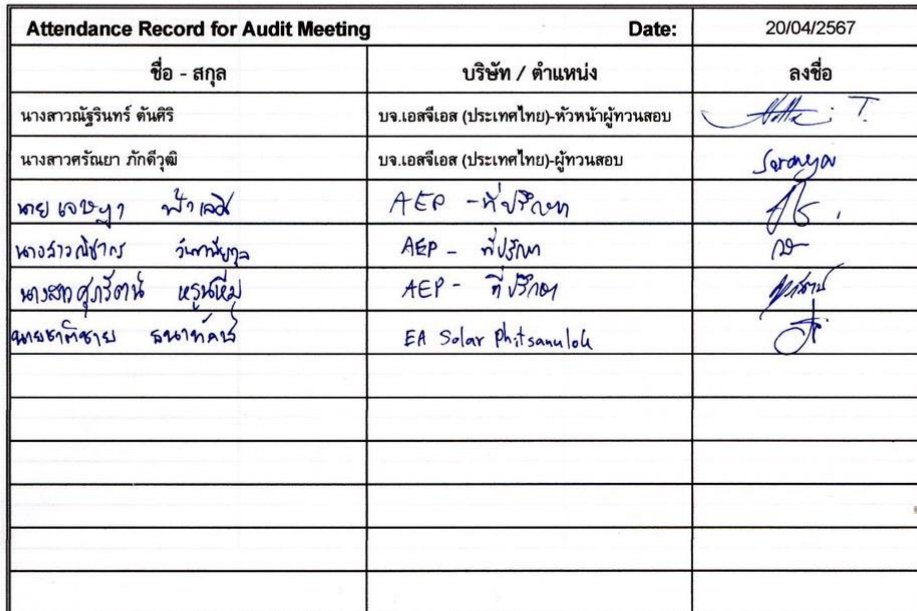 Attendance Record for Audit Meeting Date: 20/04/2567
ชื่อ - สกุล บริษัท / ตำแหน่ง ลงชื่อ
นางสาวณัฐรินทร์ ตันศิริ บจ.เอสจีเอส (ประเทศไทย)-หัวหน้าผู้ทวนสอบ
นางสาวศรัณยา ภักดีวุฒิ บจ.เอสจีเอส (ประเทศไทย)-ผู้ทวนสอบ Saranya
นาย เจษฎา AEP - ที่ปรึกษา
นางสาว AEP - ที่ปรึกษา
นางสาว ศุภรัตน์ AEP - ที่ปรึกษา
นายชาติชาย ธนาทัศน์ EA Solar Phitsanulok